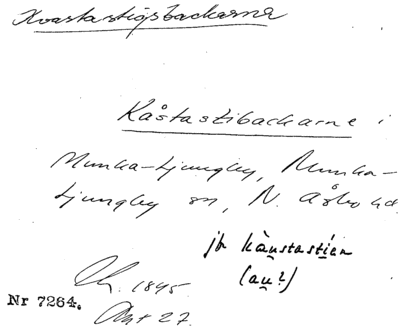 Kvastastigsbackarna
Kåstastibackarne i
Munka-Ljungby, Munka-
Ljungby sn, N. Åsbo hd.
jfr kåustastien
(au?)
1845
Nr 7264. Ant 27.